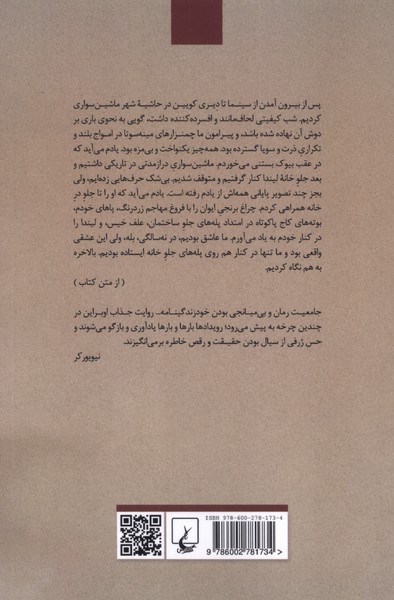 پس از بیرون آمدن از سینما تا دیری کویین در حاشیهٔ شهر ماشین‌سواری
کردیم. شب کیفیتی لحاف‌مانند و افسرده‌کننده داشت، گویی به نحوی باری بر
دوش آن نهاده شده باشد، و پیرامون ما چمنزارهای مینه‌سوتا در امواج بلند و
تکراریِ ذرت و سویا گسترده بود. همه‌چیز یکنواخت و بی‌مزه بود. یادم می‌آید که
در عقب بیوک بستنی می‌خوردم. ماشین‌سواریِ درازمدتی در تاریکی داشتیم و
بعد جلوِ خانهٔ لیندا کنار گرفتیم و متوقف شدیم. بی‌شک حرف‌هایی زده‌ایم، ولی
بجز چند تصویر پایانی همه‌اش از یادم رفته است. یادم می‌آید که او را تا جلوِ درِ
خانه همراهی کردم. چراغ برنجی ایوان را با فروغ مهاجم زردرنگ، پاهای خودم،
بوته‌های کاج پاکوتاه در امتداد پله‌های جلو ساختمان، علف خیس، و لیندا را
در کنار خودم به یاد می‌آورم. ما عاشق بودیم. نه‌سالگی، بله، ولی این عشقی
واقعی بود و ما تنها در کنار هم روی پله‌های جلو خانه ایستاده بودیم. بالاخره
به هم نگاه کردیم.
( از متن کتاب )
جامعیت رمان و بی‌میانجی بودن خودزندگینامه... روایت جذاب اوبراین در
چندین چرخه به پیش می‌رود؛ رویدادها بارها و بارها یادآوری و بازگو می‌شوند و
حس ژرفی از سیال بودن حقیقت و رقص خاطره برمی‌انگیزند.
نیویورکر
ISBN 978-600-278-173-4
9 786002 781734>